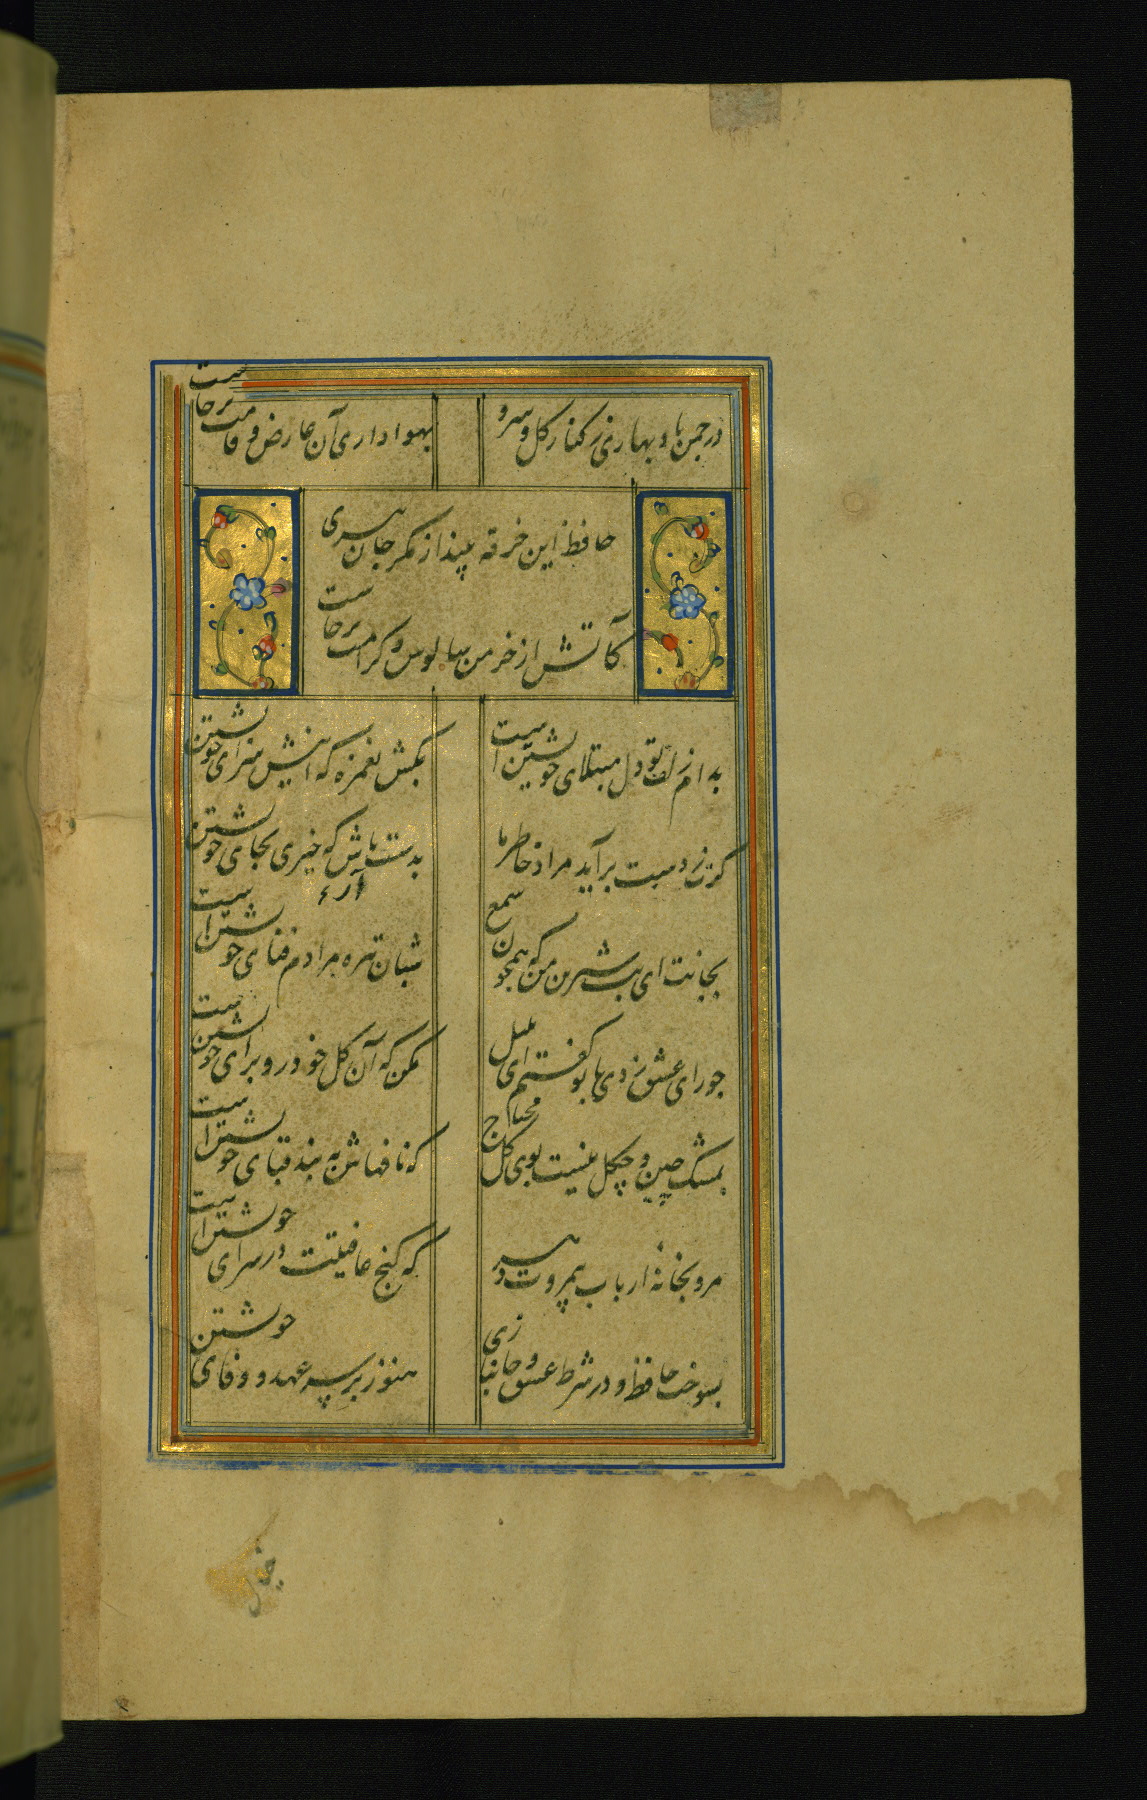 در چمن باد بهاری ز کنار گل و سرو
بهواداری آن عارض و قامت برخاست
حافظ این خرقه بینداز مگر جان ببری
کاتش از خرمن سالوس و کرامت برخاست
بدام زلف تو دل مبتلای خویشتن است
بکش بغمزه که اینش سزای خویشتن
گرت ز دست برآید مراد خاطر ما
بدست باش که خیری بجای خویشتن
بجانت ای بت شیرین من که همچون شمع
شبان تیره مرادم فنای خویشتن است
چو رای عشق زدی با تو گفتم ای بلبل
مکن که آن گل خودرو برای خویشتن است
بمشک چین و چگل نیست بوی گل محتاج
که نافهاش به بند قبای خویشتن است
مرو بخانه ارباب بیمروت دهر
که کنج عافیتت در سرای خویشتن است
بسوخت حافظ و در شرط عشق و جانبازی
هنوز بر سر عهد و وفای خویشتن